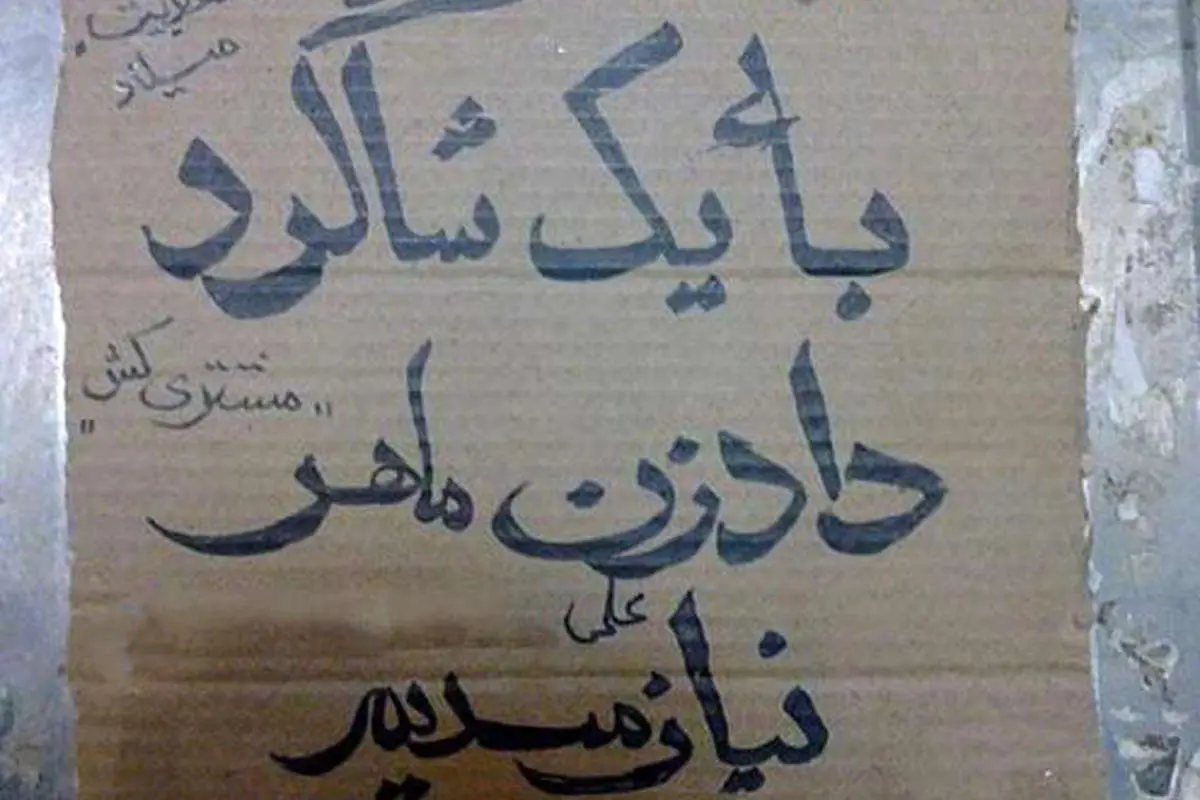 میلاد
بأ یک شاگرد
"مشتری کش"
دادزن ماهر
علمی
نیازمندیم